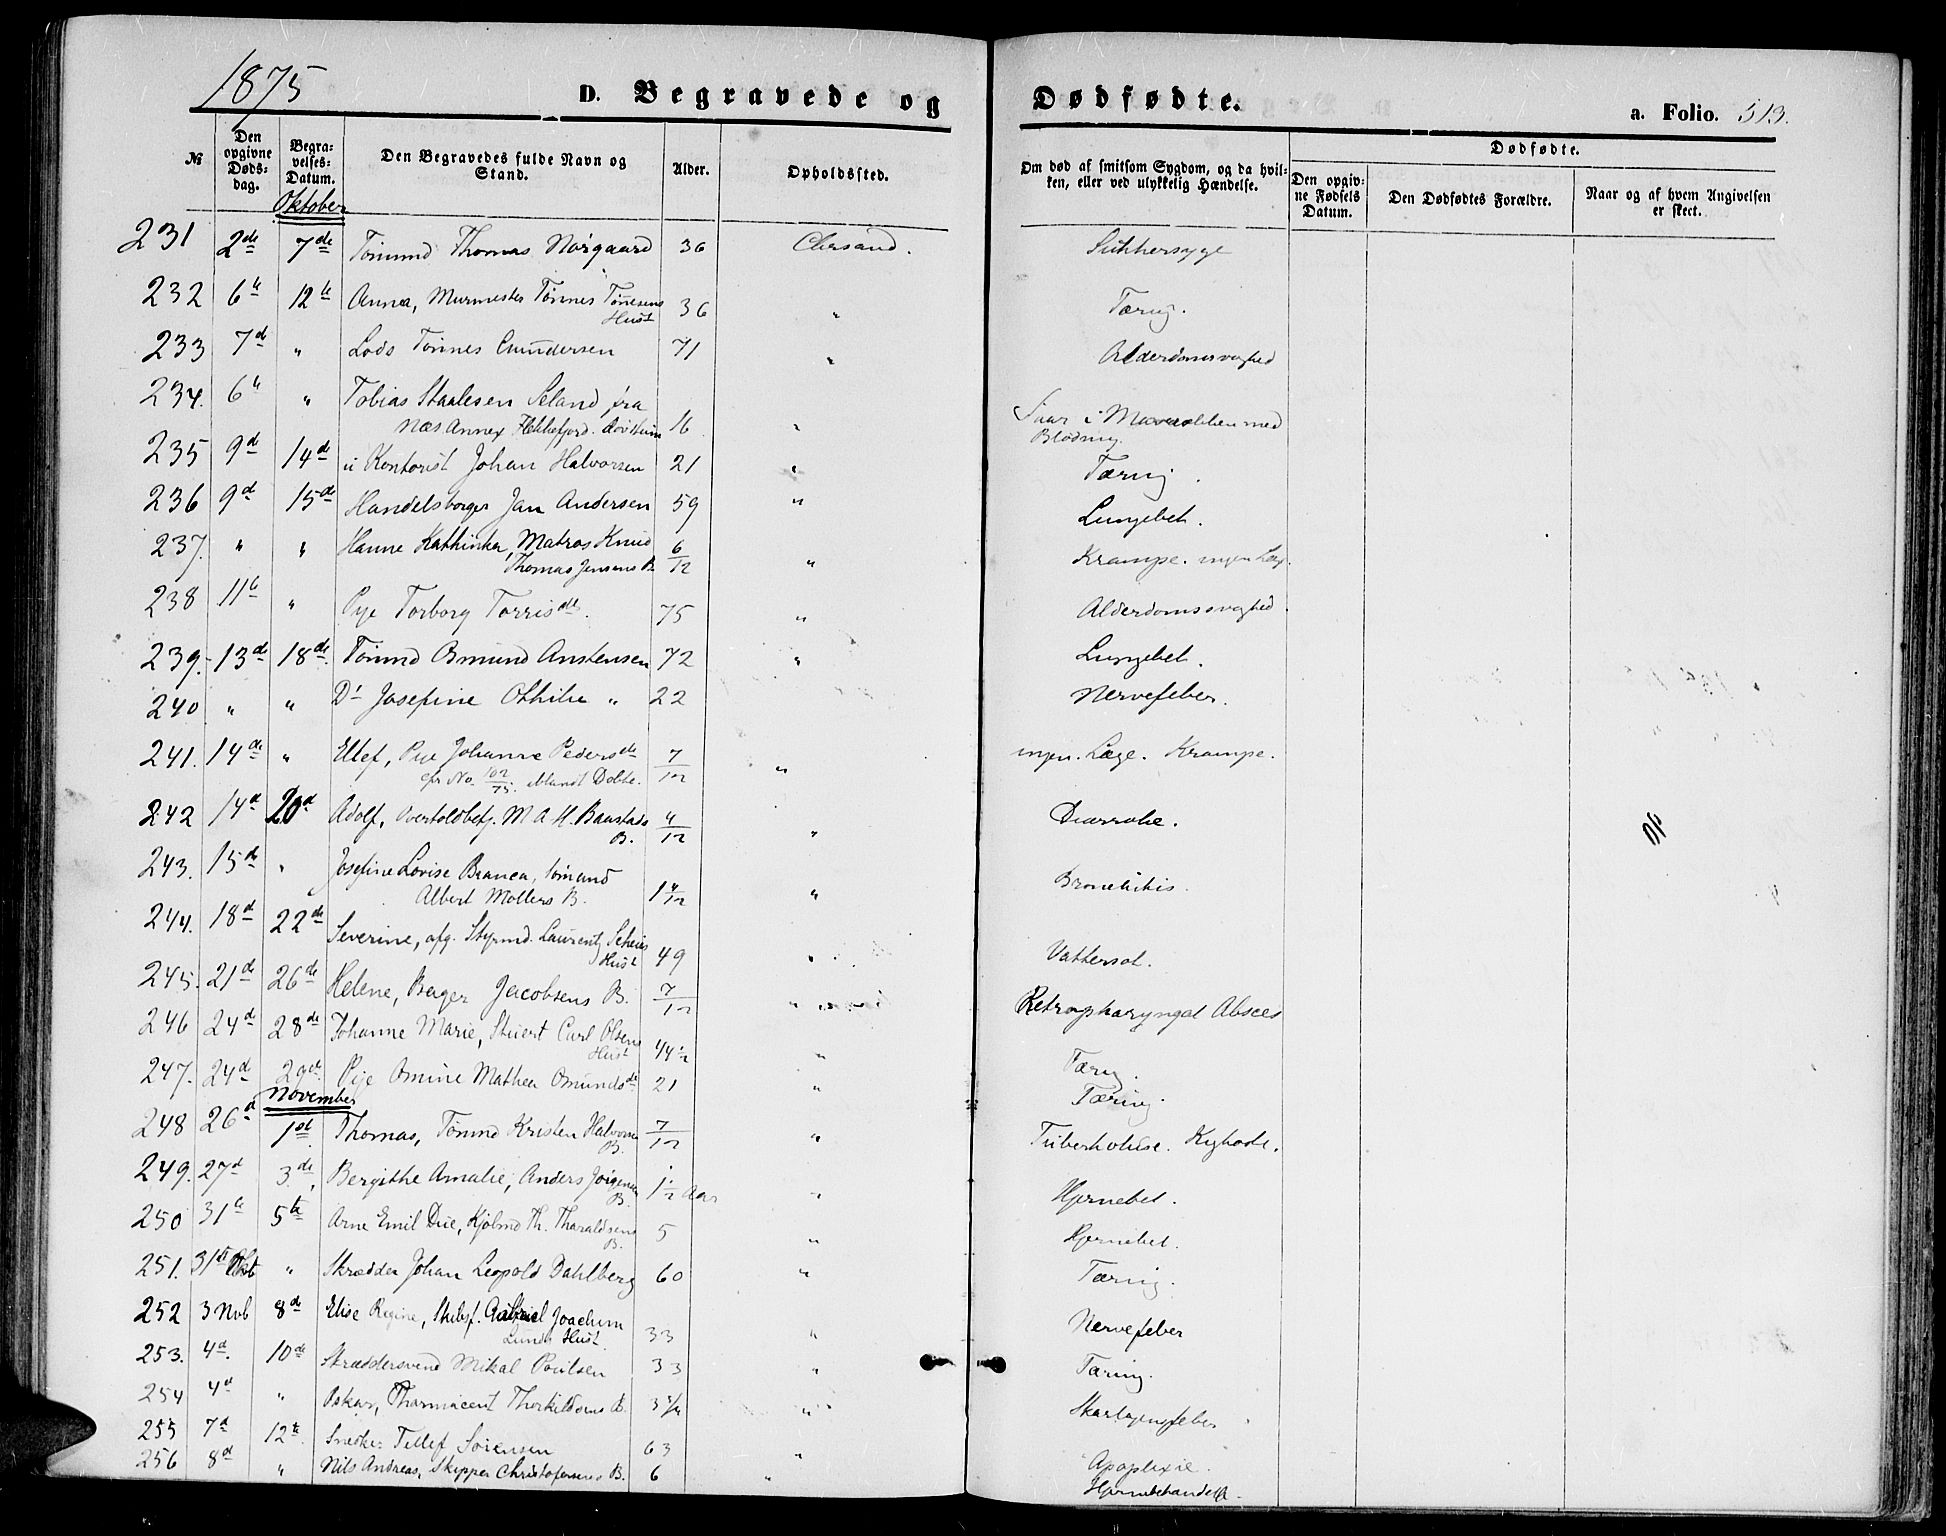 1875
D. Begravede og Dødfødte.
a. Folio. 313.
№
Den opgivne Døds-dag.
Begra-velses-Datum.
Den Begravedes fulde Navn og Stand.
Alder.
Opholdssted.
Om død af smitsom Sygdom, og da hvil-ken, eller ved ulykkelig Hændelse.
Dødfødte.
Den opgiv-ne Fødsels Datum.
Den Dødfødtes Forældre.
Naar og af hvem Angivelsen er skeet.
Oktober
231 2de 7de Tømmd Thomas Norgaard 36 Chrsand. Sukkersyge
232 6te 12te Anna, Murmester Tønnes Tønnesens Hust 36 " Tæring.
233 7d " Lods Tønnes Gundersen 71 " Alderdomsvaghed
234. 6te " Tobias Staalesen Seland fra
Næs Annex Flekkefjord. 16 " Saar i Mavesækken med Blødning.
235 9d 14de Kontorist Johan Halvorsen 21 " Tæring.
236 9d 15de Handelsborger Jan Andersen 59 " Lungebet.
237. " " Hanne Kathinka, Matros Knud
Thomas Jensens B. 6/12 " Krampe. ingen Læge.
238 11te " Pige Torborg Torrisdtr. 75 " Alderdomssvaghed.
239. 13de 18de Tømmd Omund Anstensen 72 " Lungebet.
240 " " Dr Josefine Othilie " 22 Nervefeber.
241. 14de " Ellef, Pige Johanne Pedersdtr
cfr No. 102/75. 7/12 " ingen Læge. Krampe.
242 14d 20d Adolf, Overtoldbetj. M A H. Baastads B. 4/12 " Diarrohe.
243. 15de " Josefine Lovise Branca, tømmd
Albert Møllers B. 1 4/12 " Bronchitis.
244. 18d 22de Severine, afg. Styrmd. Laurentz Hust 49 " Vattersot.
245. 21de 26de Helene, Bager Jacobsens B. 7/12 " Retropharyngal Absces
246 24d 28de Johanne Marie, Stuert Carl Olsens Hust 44 1/2 " Tæring.
247. 24d 29de Pige Omine Mathea Omundsdtr 21 " Tæring.
November
248 26d 1ste Thomas, Tømmd Kristen Halvorsens B. 7/12 " Tuberkulose. Kighoste.
249. 27d 3de Bergithe Amalie, Anders Jørgensens B. 1 1/2 Aar " Hjernebet.
250 31te 5te Arne Emil Due, Kjølmd Th. Tharaldsens B. 5 " Hjernebet.
251. 31te Okt " Skrædder Johan Leopold Dahlberg 60 " Tæring.
252 3 Novb 8de Elise Regine, Skibsf. Gabriel Joachim
Lunds Hust. 33 " Nervefeber
253. 4d. 10de Skræddersvend Mikal Poulsen 33 " Tæring.
254 4d " Oskar, Pharmacent Thorkildsens B. 3 3/4 " Skarlagensfeber
255 7d 12te Snedker Tellef Sørensen 63 " Apoplexie.
256 8d " Nils Andreas, Skipper Christofersens B. 6 "